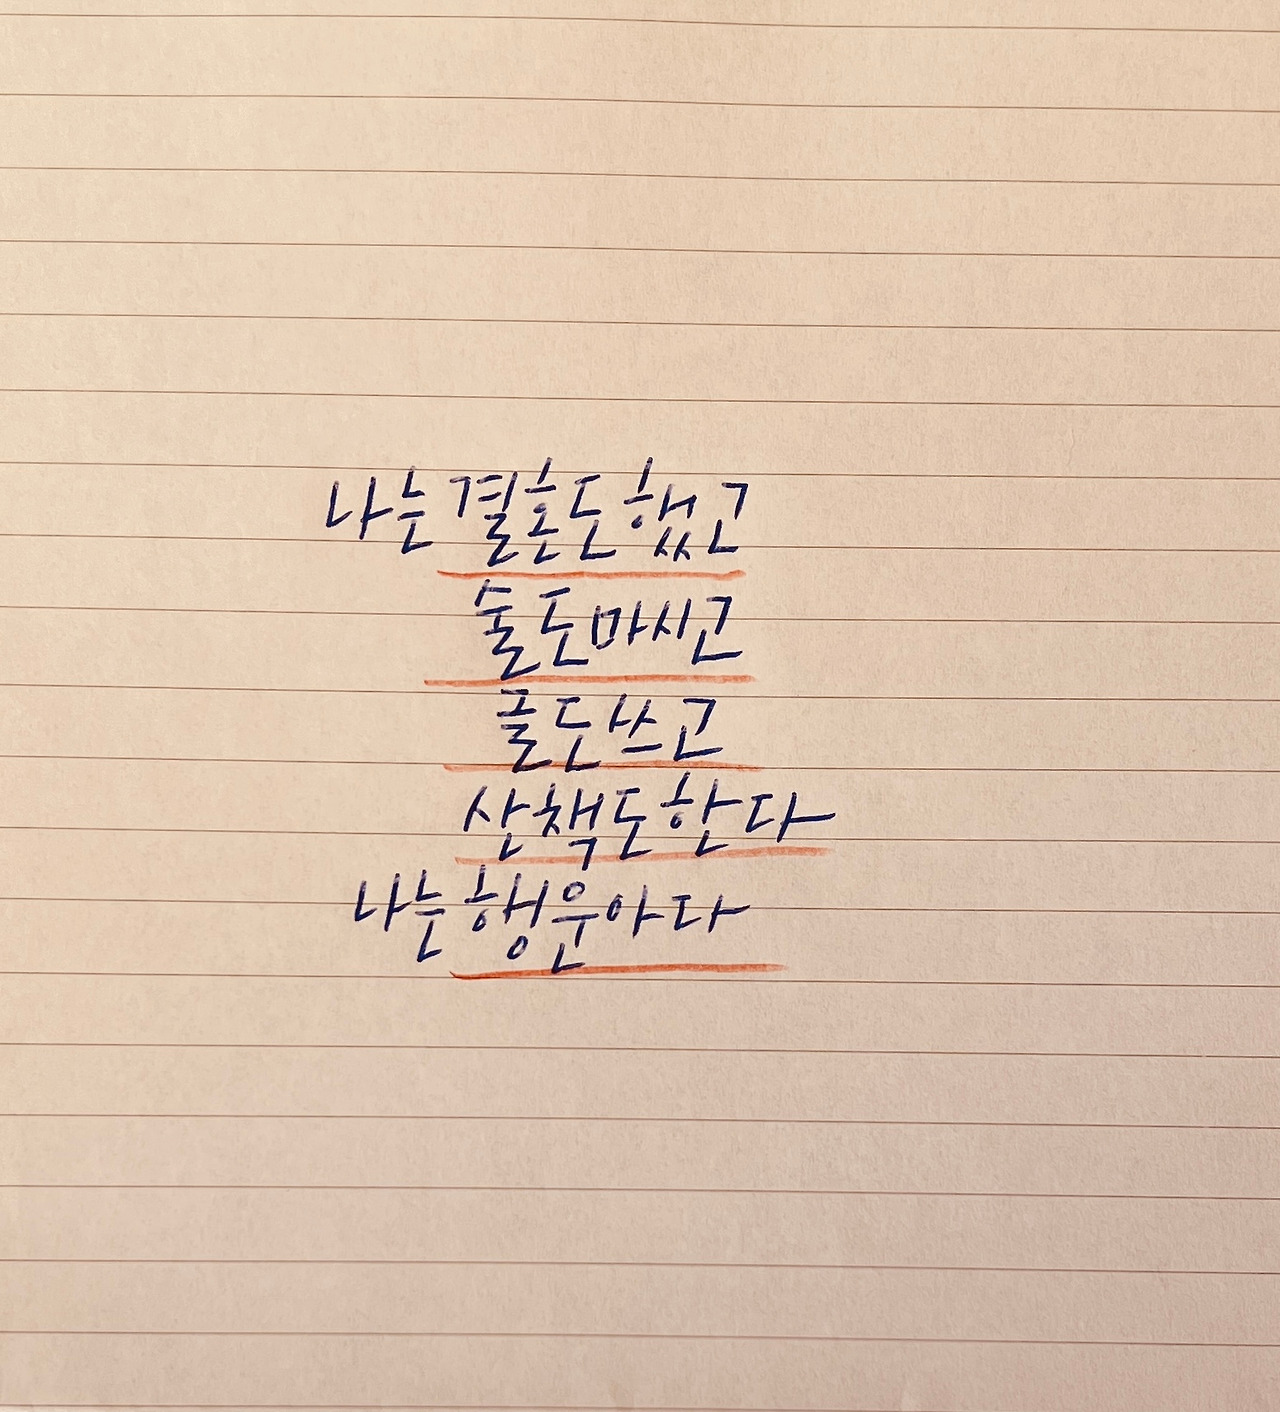 나는 결혼도 했고
술도 마시고
글도 쓰고
산책도 한다
나는 행운아다